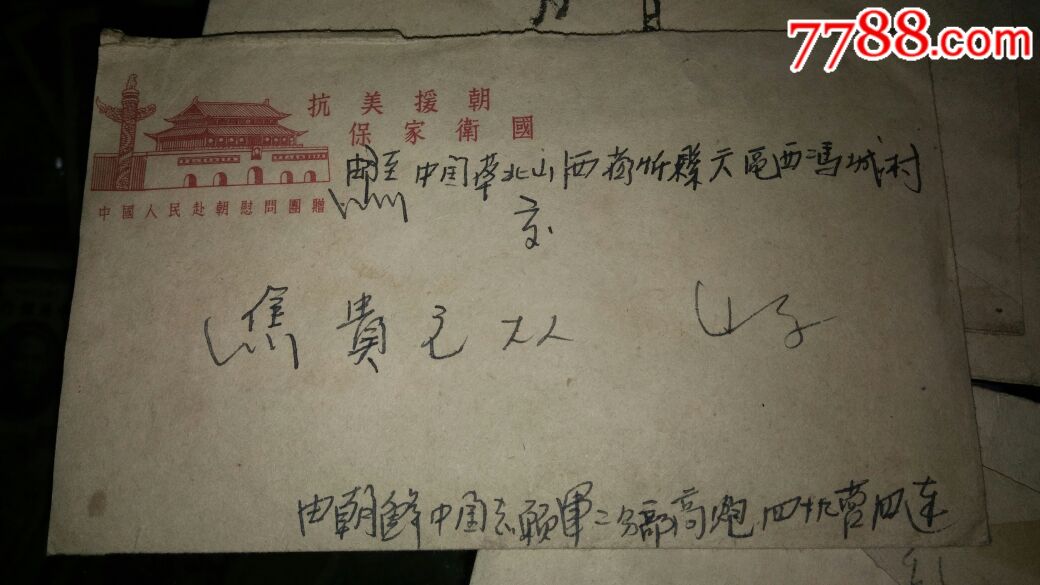 7788.com
抗美援朝
保家衛國
中國人民赴朝慰問團贈
中国華北山西省忻縣六區西馮城村
交
焦貴毛大人
由朝鮮中国志願軍二分部高炮四十九营四连